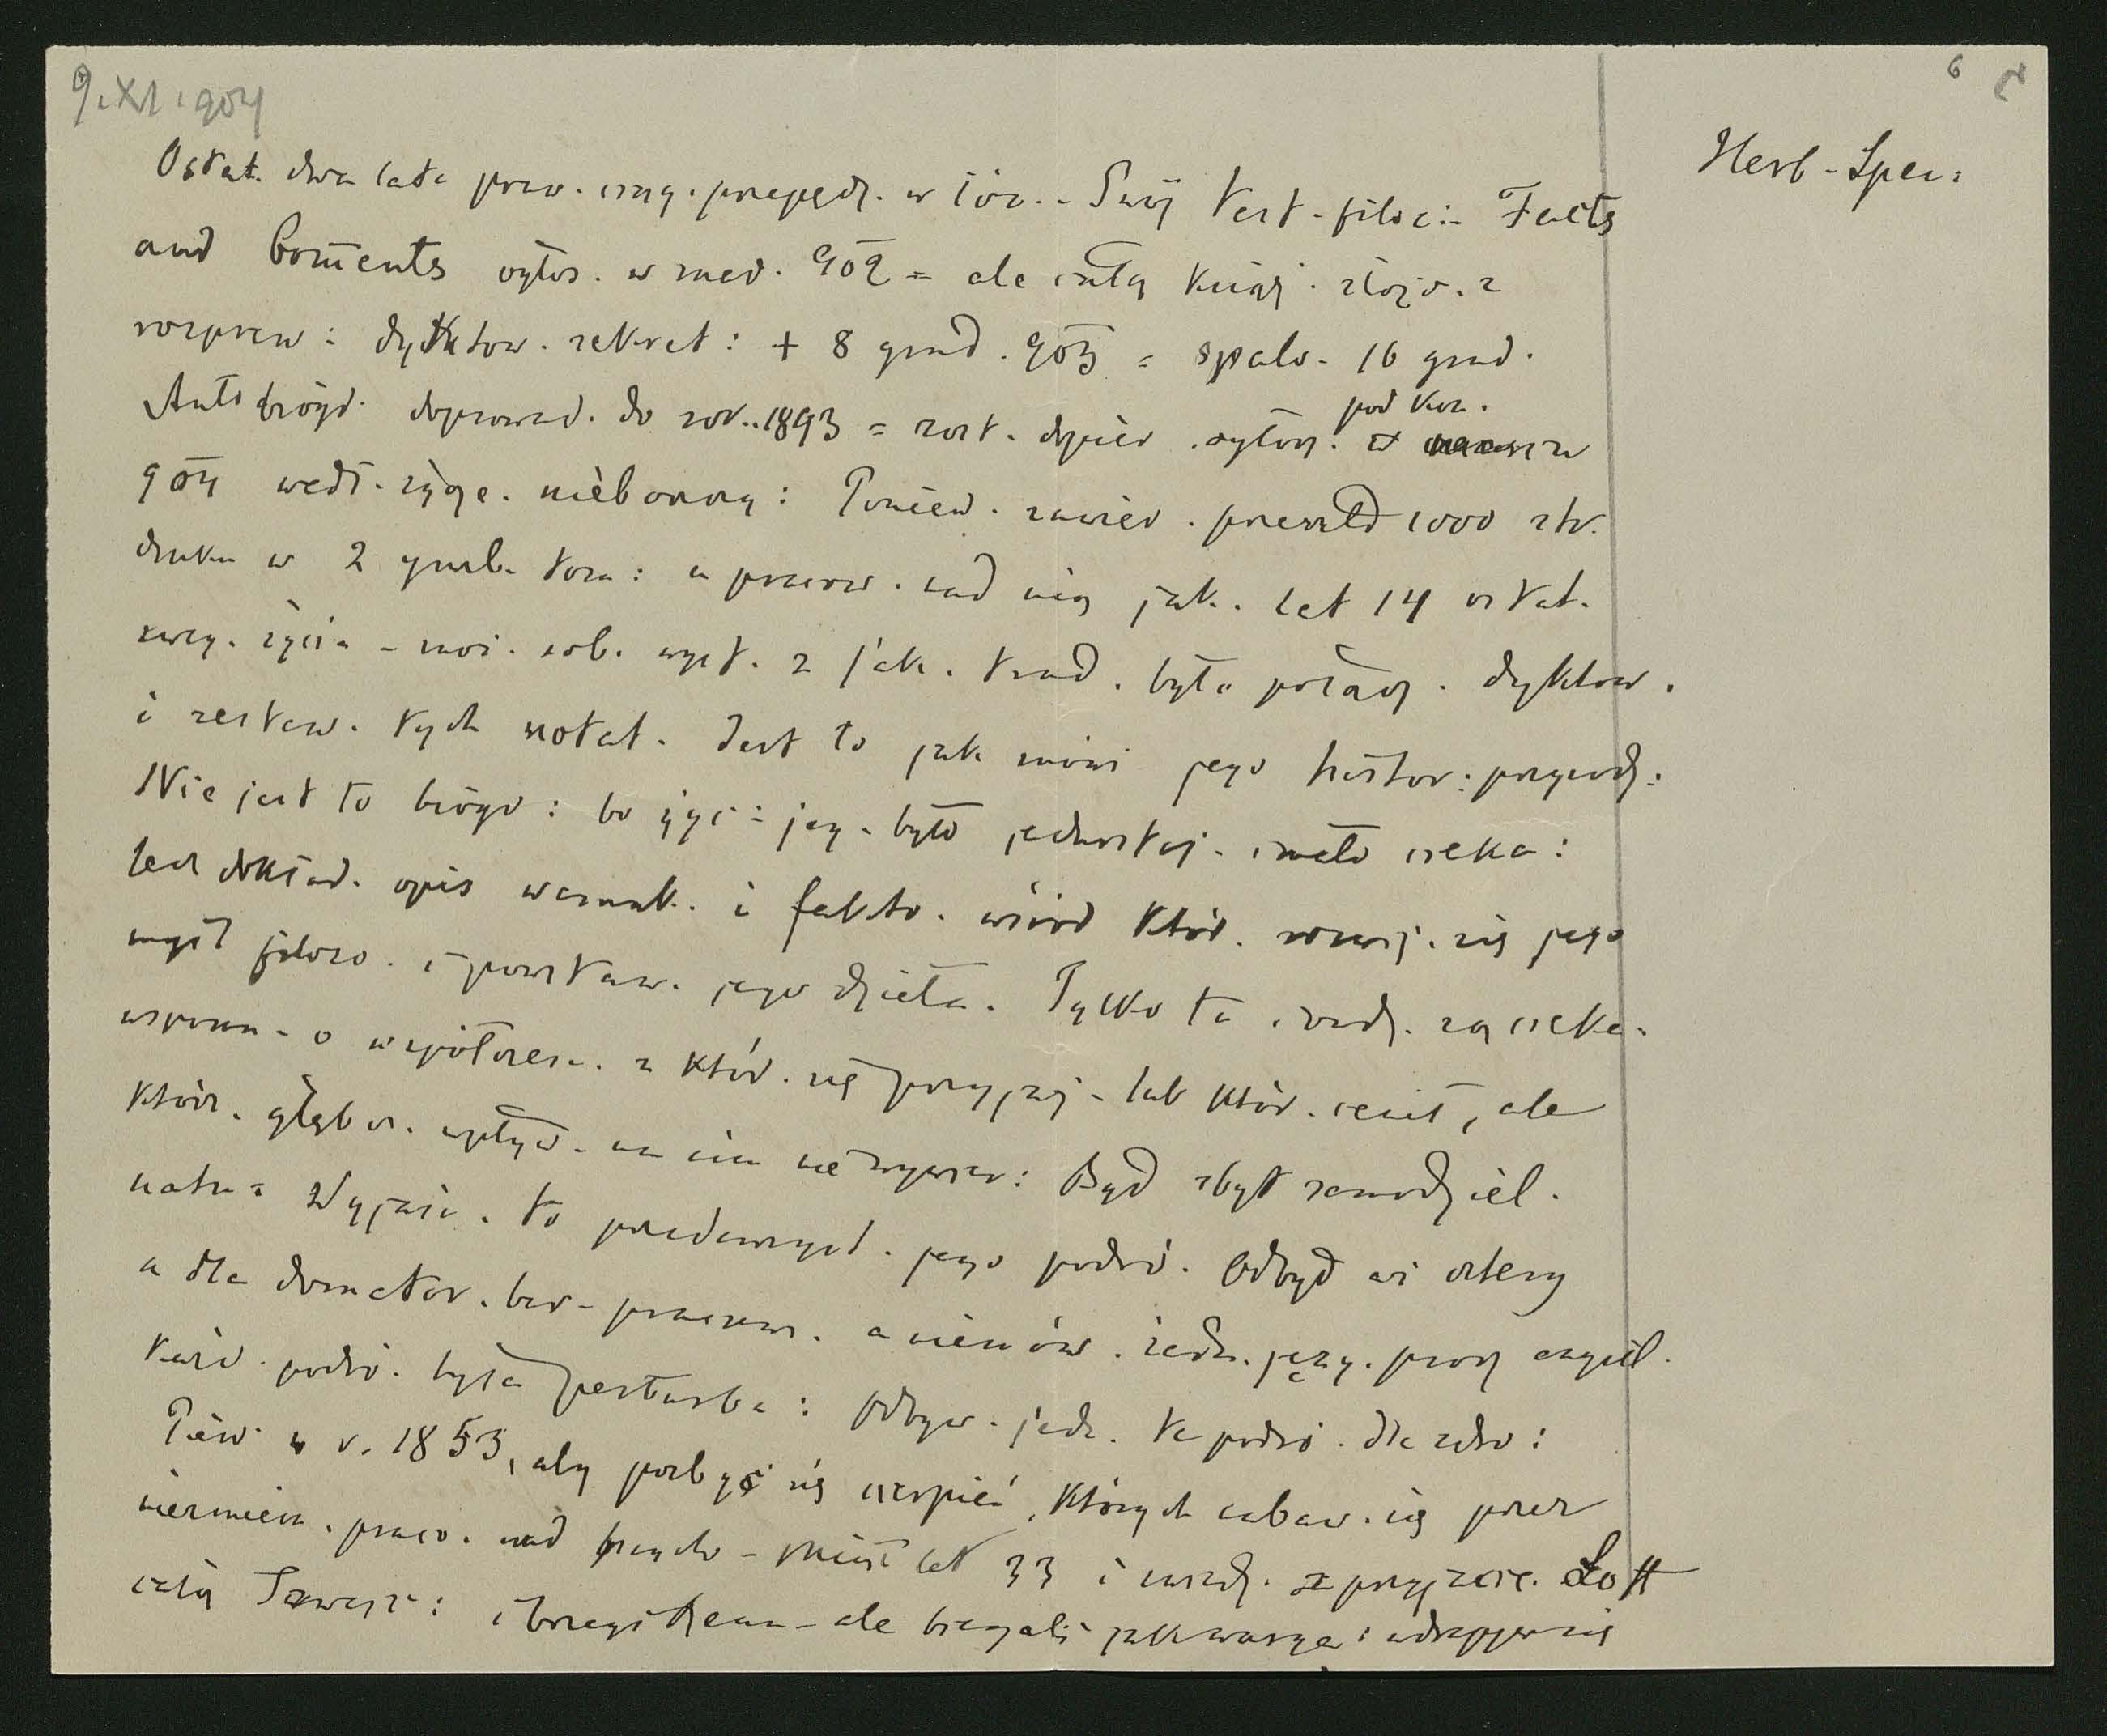 9.XI.904
6
Herb - Spen:
Ostat. dwa lata praw. przepędz. w łóż. - Swój test. filoz: Facts
and Coments ogłos. w 902 = ale całą książ. złożo. z
rozpraw: dyktow. sekret: + 8 grud. 903 = spalo. 16 grud.
Autobiogr. doprowad. do rok. 1893 = zost. dopier. ogłosz.
pod kon.
904 wedł. życz. nieboszczy: Poniew. zawier. przeszło 1000 str.
druku w 2 grub. tom: a pracow. nad nią jak. lat 14 ostat.
swej. życia - moż. sob. wyst. z jak. trud. było połącz. dyktow.
i zestaw. tych notat. Jest to jak mówi jego histor: przyrodz:
Nie jest to biogr: bo życ: jeg. było jednostaj. i mało cieka:
lecz dokład. opis warunk. i fakto. wśród któr. rozwij. się jego
myśl filozo. i powstaw. jego dzieła. Tylko tu i rzadz. są cieka.
wspom. o współczes. z któr. się przyjaź. lub któr. cenił, ale
którz. głębsz. wpływ. na nim nie wywar: Był zbyt samodziel.
natu: Wyjaśn. to przedewszyst. jego podró. Odbył ich cztery
a dla domator. bar. pracow. a niemów. żadn. języ. prócz angiel.
każd. podró. była perturba: Odbyw. jedn. te podró. dla zdro:
Pierw. w r. 1853, aby pozbyć się cierpień, których nabaw. się przez
niezmien. praco. nad psycho - Miał lat 33 i w przyjacie. Lott
całą Szwajc: i brzegi Renu - ale biegali jak warya: wdrapywa się